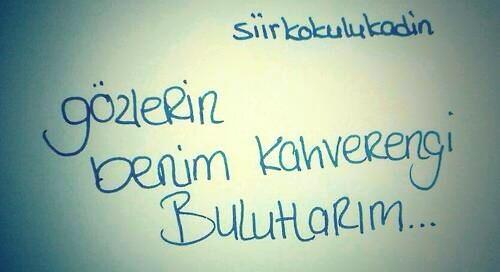 siirkokulukadin
gözlerin
benim kahverengi
Bulutlarım...